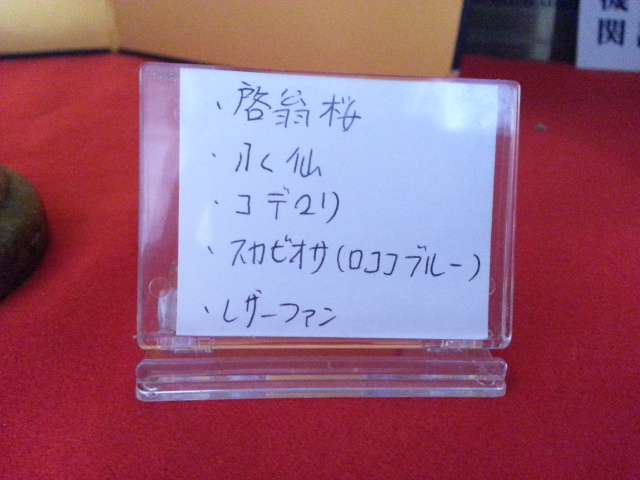 ・啓翁桜
・水仙
・コデマリ
・スカビオサ(ロココブルー)
・レザーファン
機
関